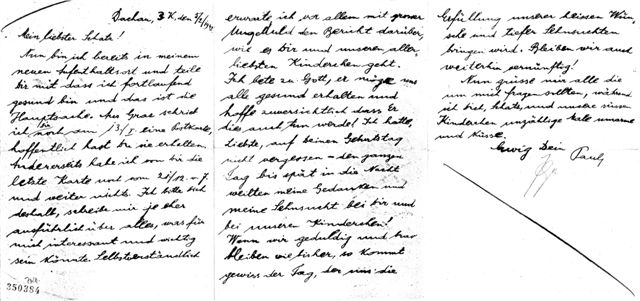 Dachau, 3 K, den 5/2/1941
Mein liebster Schatz!
Nun bin ich bereits in meinem
neuen Aufenthaltsort und teile
dir mit dass ich fortlaufend
gesund bin und das ist die
Hauptsache. Aus Graz schrieb
ich dir noch am 13/I eine Postkarte,
hoffentlich hast du sie erhalten.
Andererseits habe ich von dir die
letzte Karte und vom
und weiter nichts. Ich bitte dich
deshalb, schreibe mir je eher
ausführlich über alles, was für
mich interessant und wichtig
sein könnte. Selbstverständlich
350384
erwarte ich vor allem mit grosser
Ungeduld den Bericht darüber,
wie es dir und unseren aller-
liebsten Kinderchen geht.
Ich bete zu Gott, er möge uns
alle gesund erhalten und
hoffe zuversichtlich dass Er
dies auch tun werde! Ich hatte,
Liebste, auf deinen Geburtstag
nicht vergessen - den ganzen
Tag bis spät in die Nacht
weilten meine Gedanken und
meine Sehnsucht bei dir und
bei unseren Kinderchen!
Wenn wir geduldig und brav
bleiben wie bisher, so kommt
gewiss der Tag, der uns die
Erfüllung unserer heissen Wün-
sche und tiefer Sehnsuchten
bringen wird. Bleiben wir auch
weiterhin vernünftig!
Nun grüsse mir alle die
um mich fragen sollten, während
ich dich, Schatz, und unsere süssen
Kinderchen unzählige Male umarme
und küsse.
Ewig Dein Paul